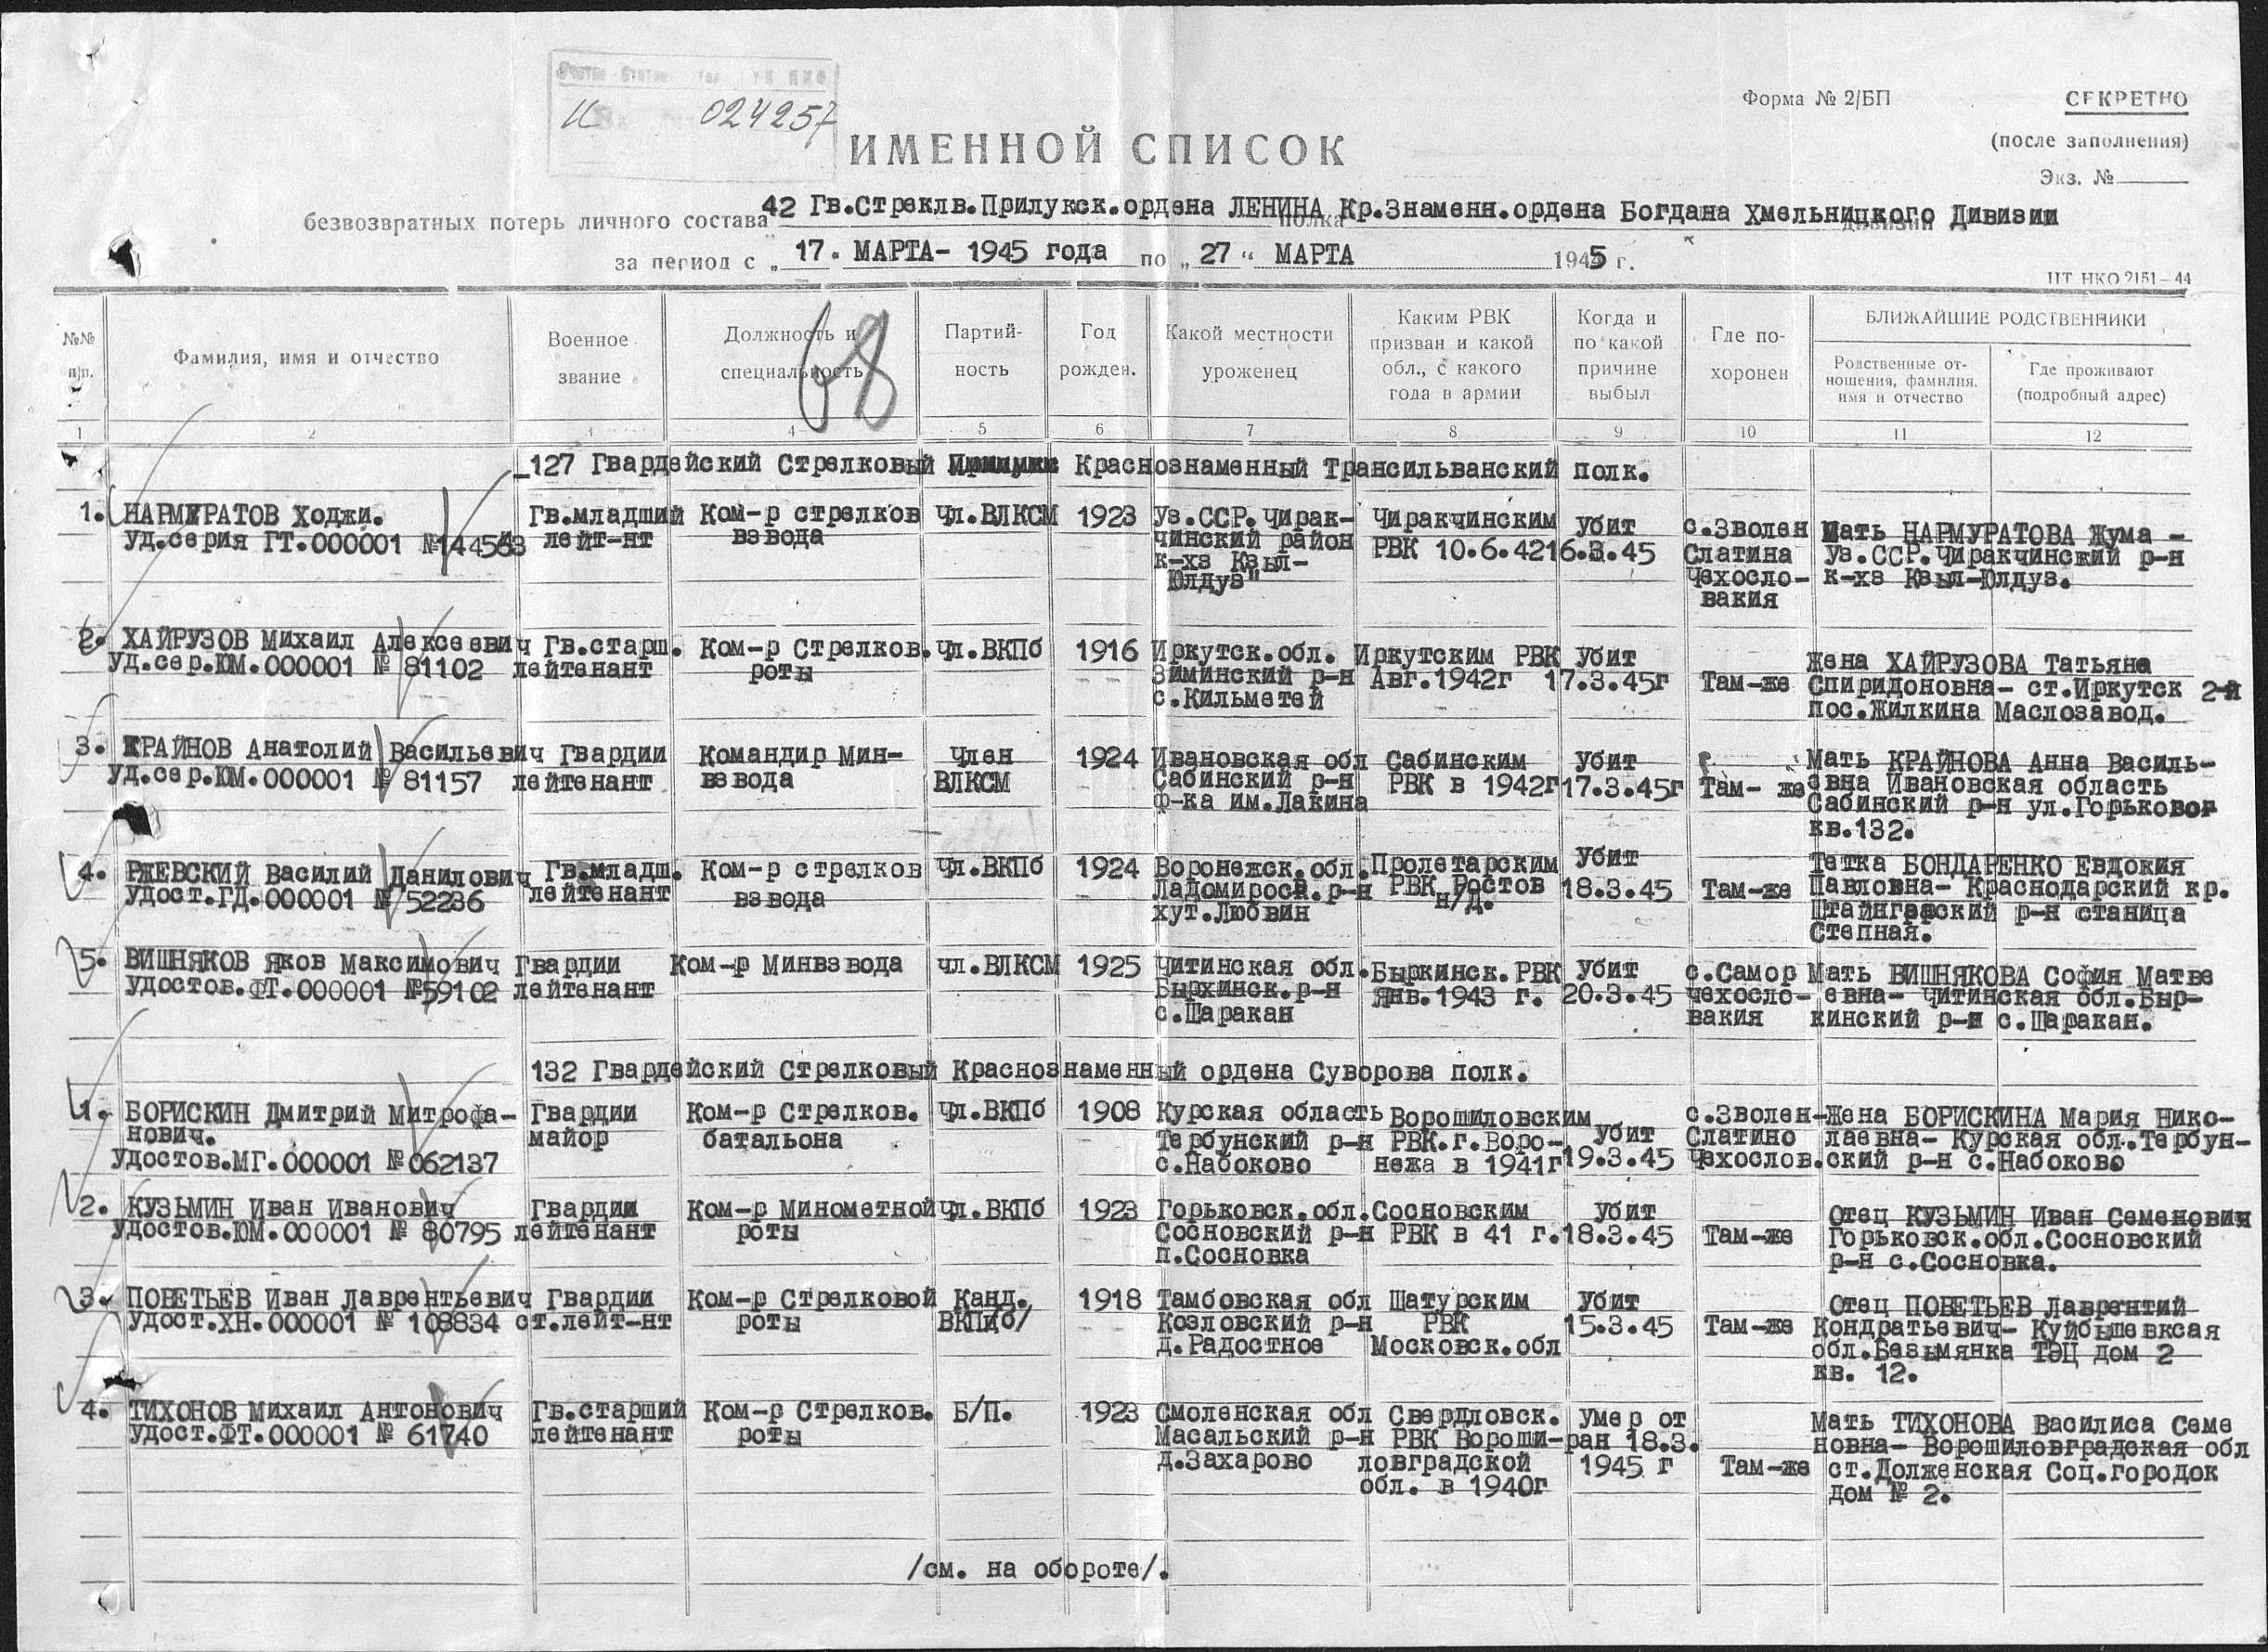 И 024257
Форма № 2/БП
СЕКРЕТНО
(после заполнения)
Экз. №
ИМЕННОЙ СПИСОК
безвозвратных потерь личного состава 42 Гв.Стреклв.Прилукск.ордена ЛЕНИНА полка Кр.Знаменн.ордена Богдана Хмельницкого дивизии Дивизии
за период с „ 17 " МАРТА- 1945 года по „ 27 " МАРТА 1945 г.
ЦТ НКО 2151-44
68
№№ п/п.
Фамилия, имя и отчество
Военное звание
Должность и специальность
Партий- ность
Год рожден.
Какой местности уроженец
Каким РВК призван и какой обл., с какого года в армии
Когда и по какой причине выбыл
Где по- хоронен
БЛИЖАЙШИЕ РОДСТВЕННИКИ
Родственные от- ношения, фамилия, имя и отчество
Где проживают (подробный адрес)
1 2 4 5 6 7 8 9 10 11 12
127 Гвардейский Стрелковый Краснознаменный Трансильванский полк.
1. НАРМУРАТОВ Ходжи. Гв.младший Ком-р стрелков чл.ВЛКСМ 1923 Уз.ССР.Чирак- Чиракчинским убит с.Зволен Мать НАРМУРАТОВА Жума -
уд.серия ГТ.000001 лейт-нт взвода чинский район РВК 10.6.42 16.3.45 Слатина Уз.ССР.Чиракчинский р-н
к-хз Кзыл- Чехосло- к-хз Кзыл-Юлдуз.
Юлдуз" вакия
2. ХАЙРУЗОВ Михаил Алексеевич Гв.старш. Ком-р Стрелков. чл.ВКПб 1916 Иркутск.обл. Иркутским РВК убит Жена ХАЙРУЗОВА Татьяна
Уд.сер.ЮМ.000001 № 81102 лейтенант роты Зиминский р-н Авг.1942г 17.3.45г Там-же Спиридоновна- ст.Иркутск 2-й
с.Кильметей пос.Жилкина Маслозавод.
3. КРАЙНОВ Анатолий Васильевич Гвардии Командир Мин- Член 1924 Ивановская обл Сабинским убит Мать КРАЙНОВА Анна Василь-
Уд.сер.ЮМ.000001 № 81157 лейтенант взвода ВЛКСМ Сабинский р-н РВК в 1942г 17.3.45г Там- же евна Ивановская область
ф-ка им.Лакина Сабинский р-н ул.Горьковог
кв.132.
4. РЖЕВСКИЙ Василий Данилович Гв.младш. Ком-р стрелков чл.ВКПб 1924 Воронежск.обл. Пролетарским убит Тетка БОНДАРЕНКО Евдокия
удост.ГД.000001 № 52236 лейтенант взвода Ладомировск.р-н РВК Ростов 18.3.45 Там-же Павловна- Краснодарский кр.
хут.Любвин н/Д. Штайнгардский р-н станица
Степная.
5. ВИШНЯКОВ Яков Максимович Гвардии Ком-р Минвзвода чл.ВЛКСМ 1925 Читинская обл. Быркинск.РВК убит с.Самор Мать ВИШНЯКОВА София Матве
удостов.ФТ.000001 №59102 лейтенант Бырхинск.р-н Янв.1943 г. 20.3.45 чехосло- евна- Читинская обл.Быр-
с.Шаракан вакия кинский р-н с.Шаракан.
132 Гвардейский Стрелковый Краснознаменный ордена Суворова полк.
1. БОРИСКИН Дмитрий Митрофа- Гвардии Ком-р Стрелков. чл.ВКПб 1908 Курская область Ворошиловским с.Зволен- Жена БОРИСКИНА Мария Нико-
нович. майор батальона Тербунский р-н РВК.г.Воро- убит Слатино лаевна- Курская обл.Тербун-
Удостов.МГ.000001 №062137 с.Набоково нежа в 1941г 19.3.45 Чехослов. ский р-н с.Набоково
2. КУЗЬМИН Иван Иванович Гвардии Ком-р Минометной чл.ВКПб 1923 Горьковск.обл. Сосновским убит Отец КУЗЬМИН Иван Семенович
Удостов.ЮМ.000001 № 80795 лейтенант роты Сосновский р-н РВК в 41 г. 18.3.45 Там-же Горьковск.обл.Сосновский
п.Сосновка р-н с.Сосновка.
3. ПОВЕТЬЕВ Иван Лаврентьевич Гвардии Ком-р Стрелковой Канд. 1918 Тамбовская обл Шатурским убит Отец ПОВЕТЬЕВ Лаврентий
Удост.ХН.000001 № 108834 ст.лейт-нт роты ВКП/б/ Козловский р-н РВК 15.3.45 Там-же Кондратьевич- Куйбышевксая
д.Радостное Московск.обл обл.Безымянка ТЭЦ дом 2
кв. 12.
4. ТИХОНОВ Михаил Антонович Гв.старший Ком-р Стрелков. Б/П. 1923 Смоленская обл Свердловск. умер от Мать ТИХОНОВА Василиса Семе
Удост.ФТ.000001 № 61740 лейтенант роты Масальский р-н РВК Вороши- ран 18.3. новна- Ворошиловградская обл
д.Захарово ловградской 1945 г Там-же ст.Долженская Соц.городок
обл. в 1940г дом № 2.
/см. на обороте/.